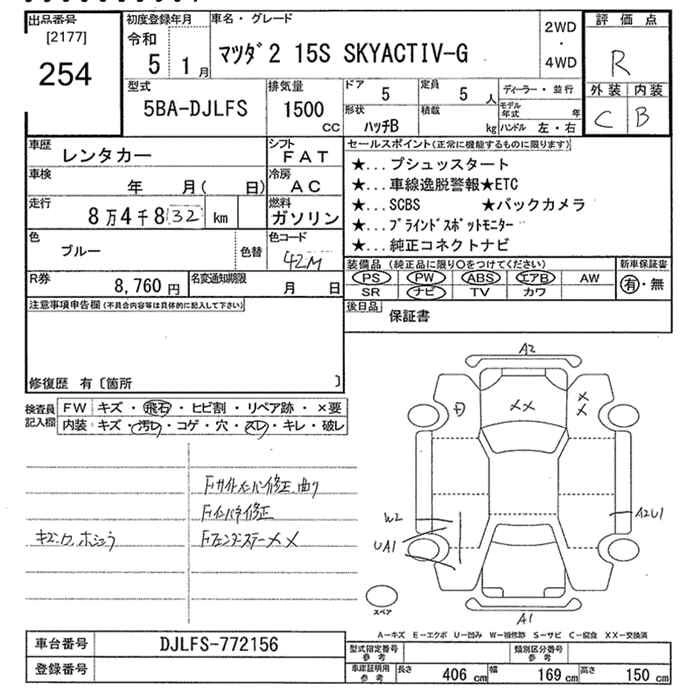 出品番号
[2177]
254
初度登録年月
令和
5 1月
車名・グレード
マツダ2 15S SKYACTIV-G
2WD
・
4WD
評価点
R
外装 内装
C B
型式
5BA-DJLFS
排気量
1500
CC
ドア
5
定員
5 人
ディーラー・並行
形状
ハッチB
積載
kg
モデル年式 年
ハンドル 左・右
車歴
レンタカー
シフト
FAT
車検
年 月( 日)
冷房
AC
走行
8万4千8132 km
燃料
ガソリン
色
ブルー
色替
色コード
42M
R券
8,760円
名変通知期限
月 日
セールスポイント(正常に機能するものに限ります)
★...プシュッスタート
★...車線逸脱警報★ETC
★...SCBS ★バックカメラ
★...ブラインドスポットモニター
★...純正コネクトナビ
装備品(純正品に限り〇をつけてください)
PS PW ABS エアB AW
SR ナビ TV カワ
新車保証書
有・無
後日品
保証書
注意事項申告欄(不具合内容等は具体的に記入して下さい)
修復歴 有〔箇所 〕
検査員記入欄
FW キズ・飛石・ヒビ割・リペア跡・×要
内装 キズ・汚レ・コゲ・穴・スレ・キレ・破レ
Fサイドメンバー修正、曲り
Fインパネ修正
Fフェンダーステー××
A2
××
×
×
W2
UA1
A2U1
A1
スペア
A-キズ E-エクボ U-凹み W-補修跡 S-サビ C-腐食 XX-交換済
車台番号
DJLFS-772156
登録番号
型式指定番号
参考
類別区分番号
参考
車庫証明用
参考
長さ 406 cm 幅 169 cm 高さ 150 cm